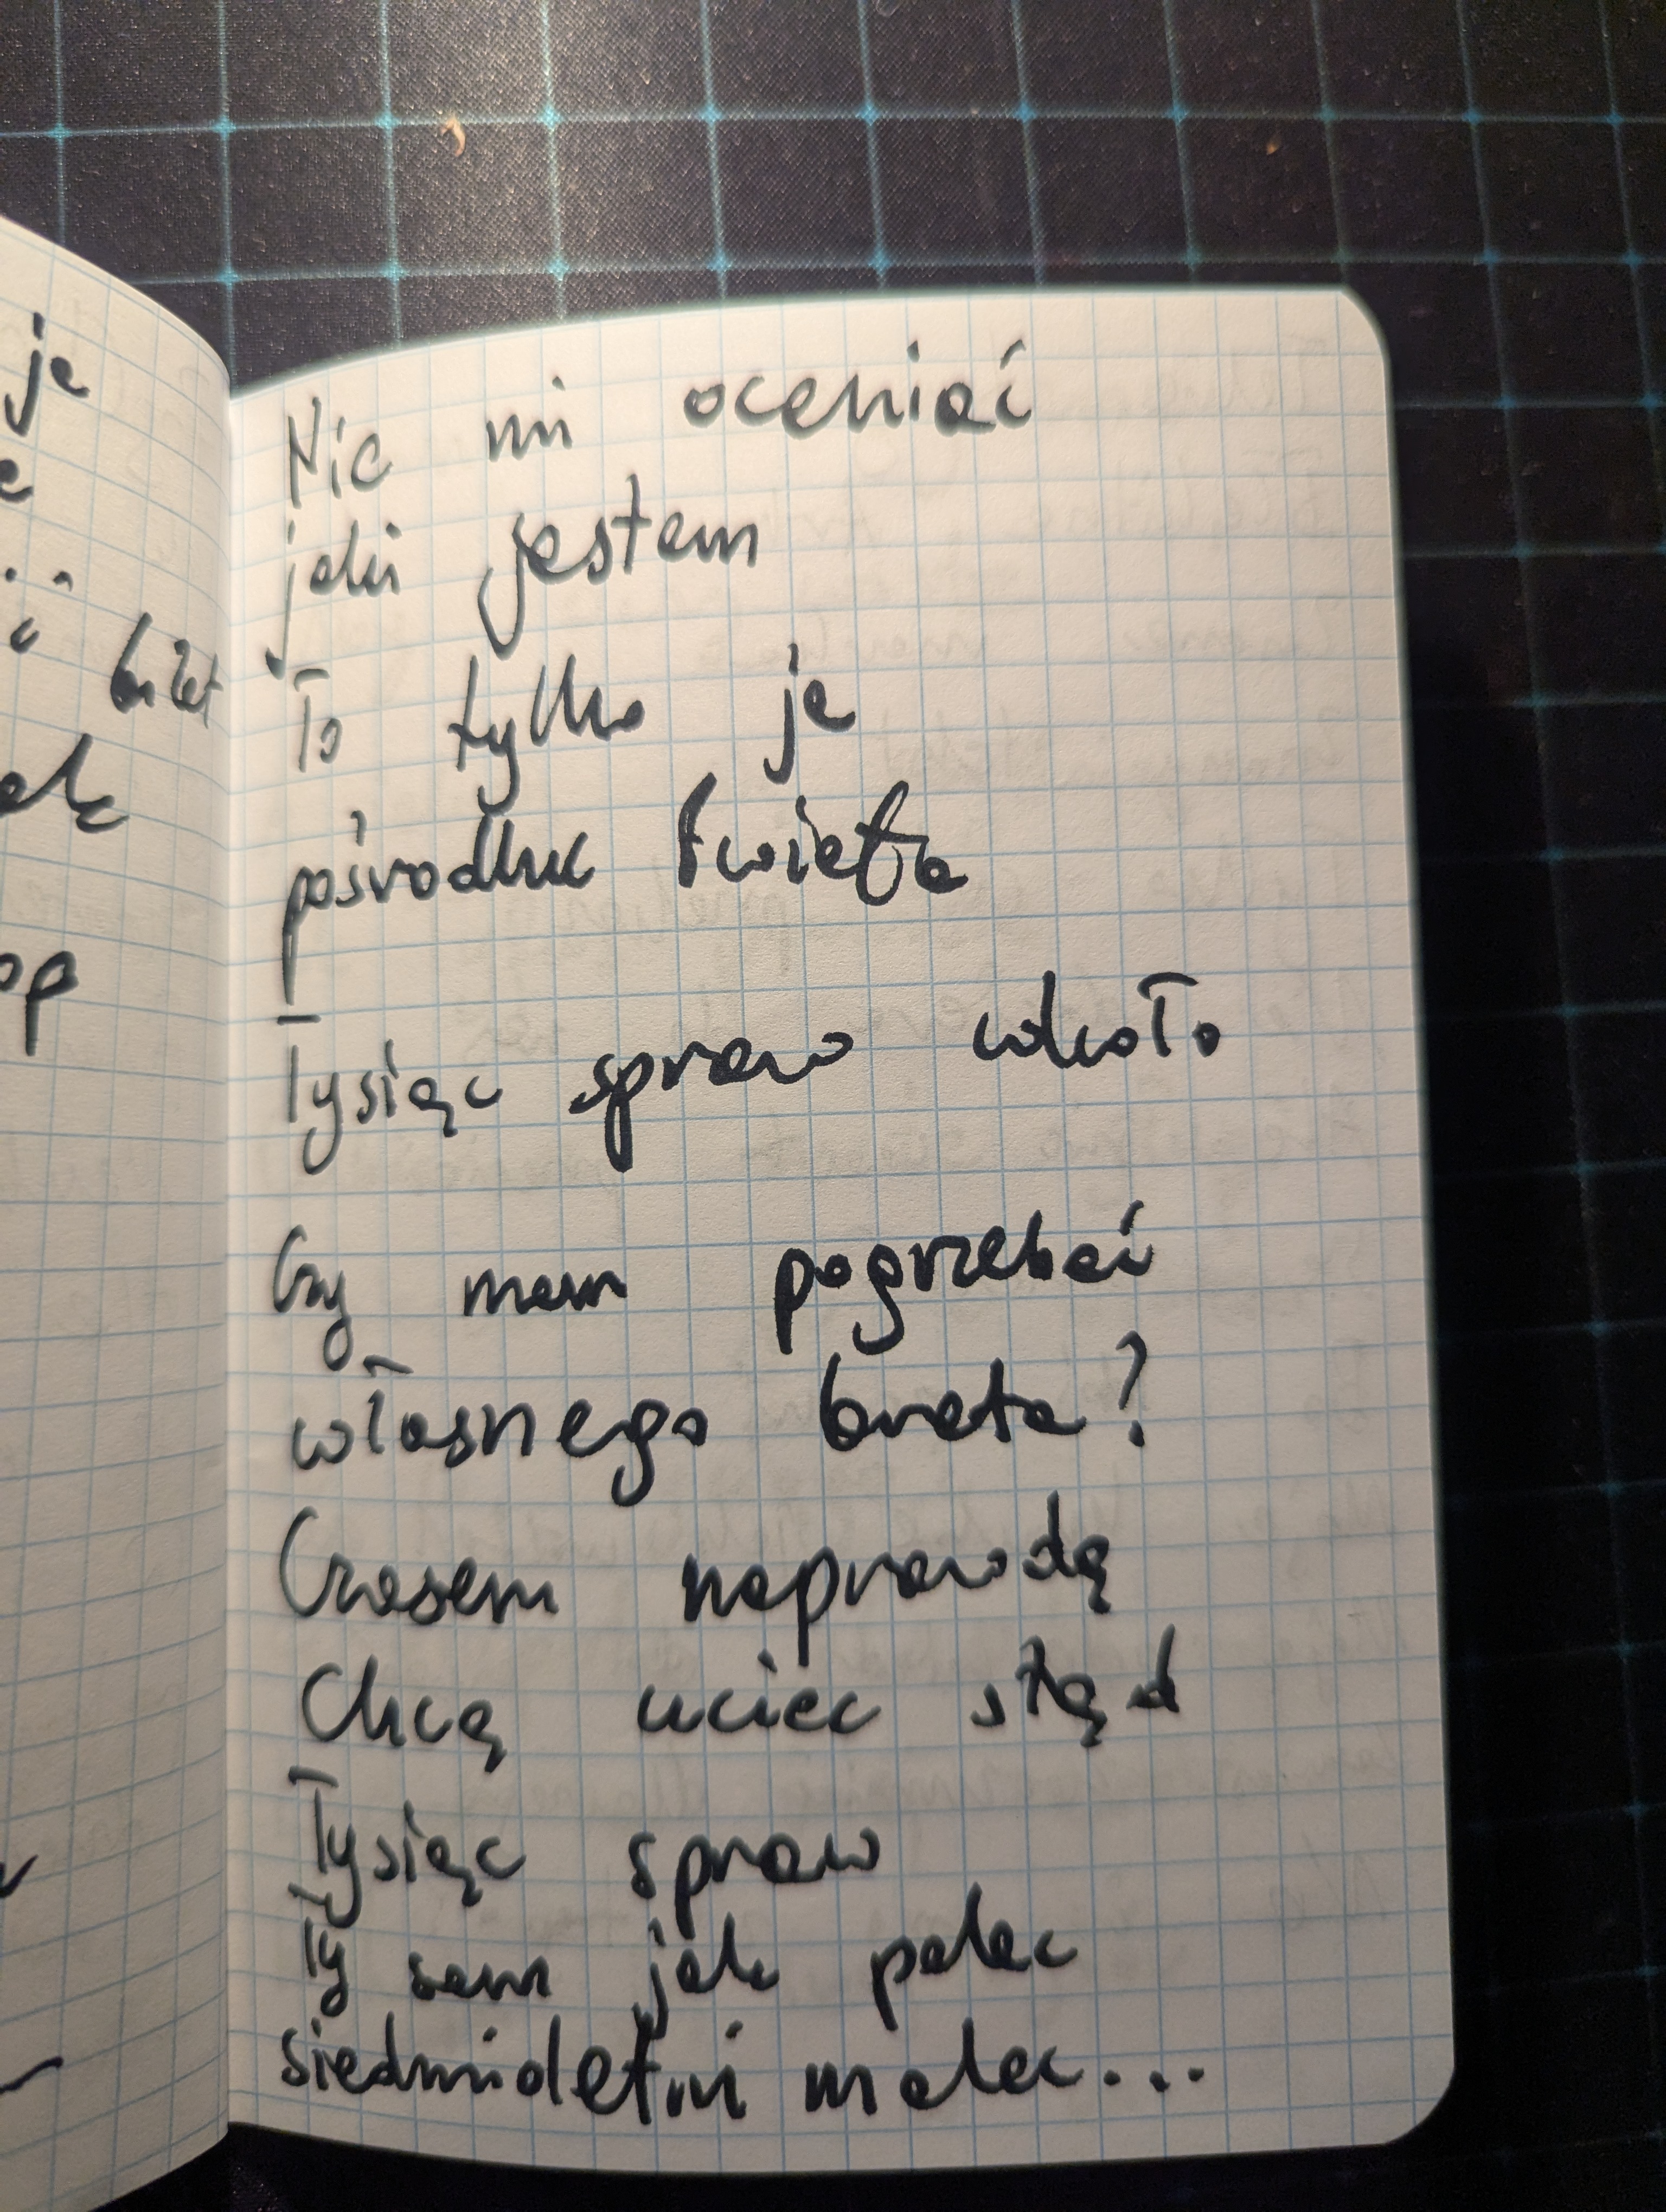 je
e
biLet
ak
op
Nie mi oceniać
jaki jestem
To tylko ja
pośrodku świata
Tysiąc spraw wkoło
Czy mam pogrzebać
własnego brata?
Czasem naprawdę
Chcę uciec stąd
Tysiąc spraw
Ty sam jak palec
siedmioletni malec...